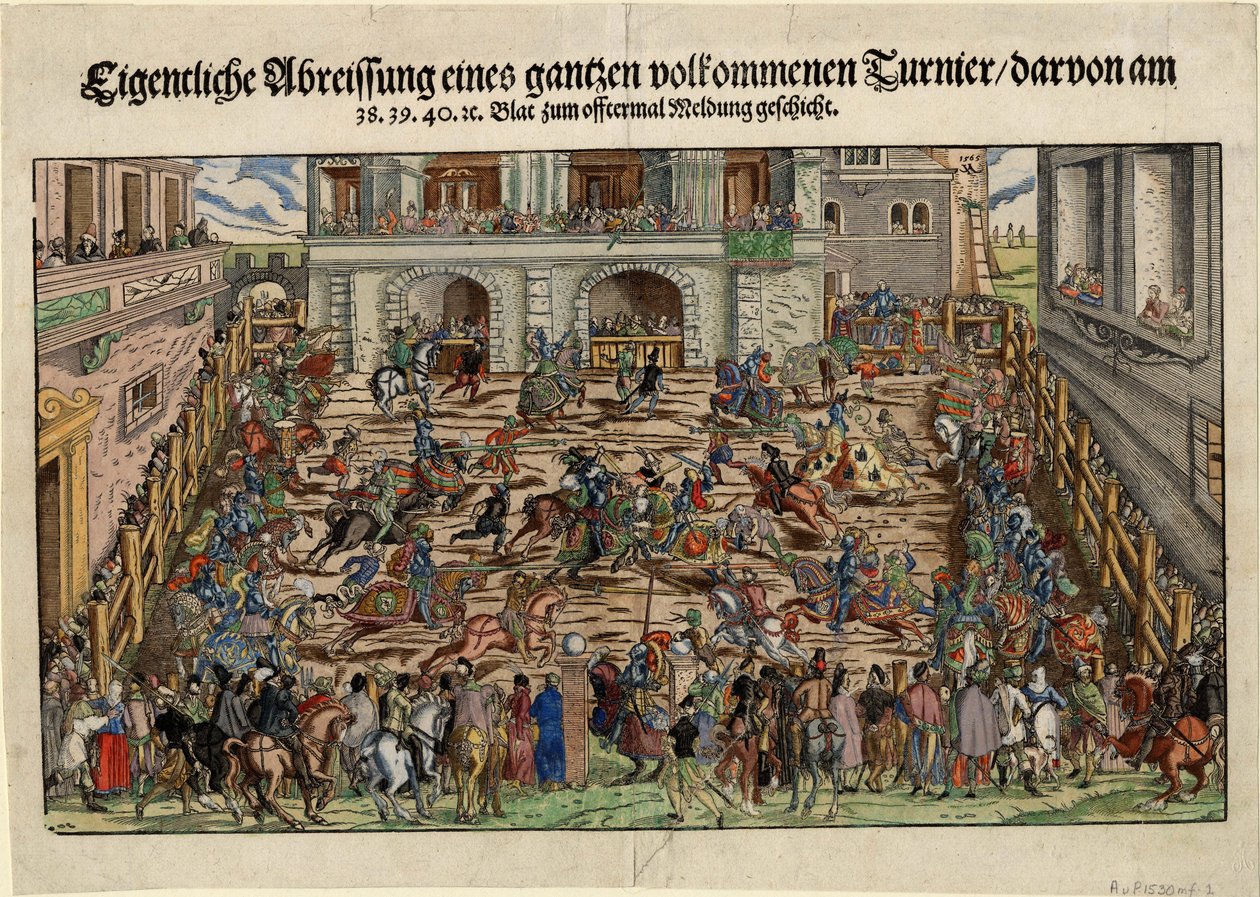 Eigentliche Abreissung eines gantzen volkommenen Turnier/darvon am
38. 39. 40. ꝛc. Blat zum offtermal Meldung geschicht.
1565
A v P. 1530 mf. 1